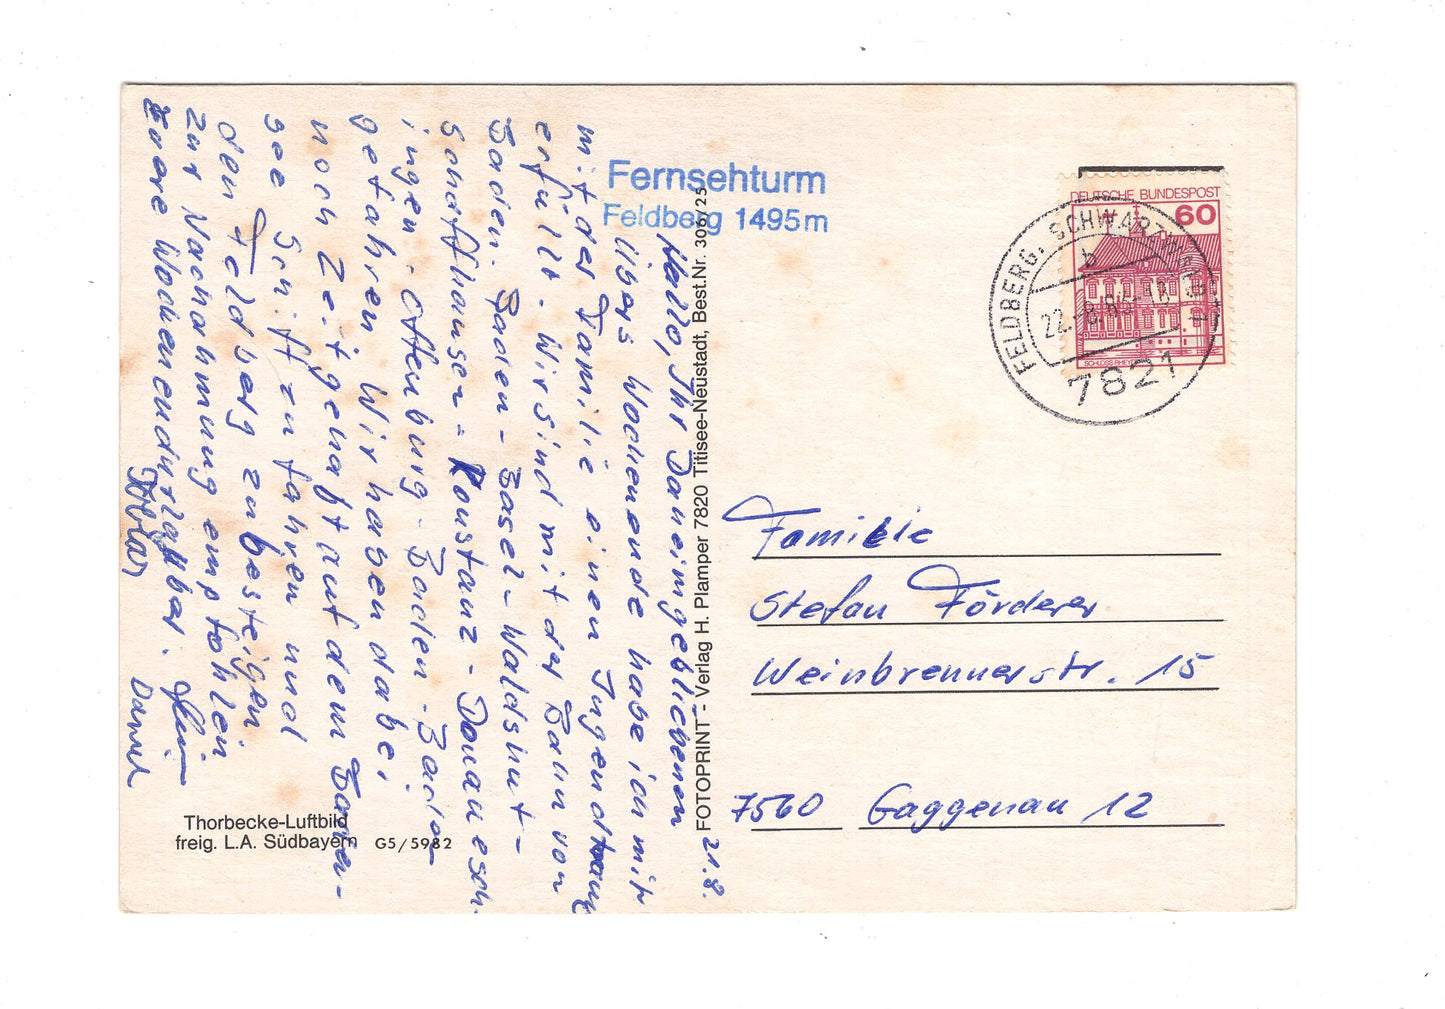 Fernsehturm
Feldberg 1495m
DEUTSCHE BUNDESPOST
60
SCHLOSS RHEYDT
FELDBERG, SCHWARZWALD 1
b
7821
21.8.
Hallo, Ihr Daheimgebliebenen
Übers Wochenende habe ich mir
mit der Familie einen Jugendtraum
erfüllt. Wir sind mit der Bahn von
Baden-Baden - Basel - Waldshut -
Schaffhausen - Konstanz - Donauesch-
ingen - Offenburg - Baden-Baden
gefahren. Wir haben dabei
noch Zeit gehabt auf dem Boden-
see Schiff zu fahren und
den Feldberg zu besteigen
zur Nachahmung empfohlen
Eure Wochenendurlauber.
Tobias
Daniel
FOTOPRINT - Verlag H. Plamper 7820 Titisee-Neustadt, Best.Nr. 306/25
Familie
Stefan Förderer
Weinbrennerstr. 15
7560 Gaggenau 12
Thorbecke-Luftbild
freig. L.A. Südbayern G5/5982